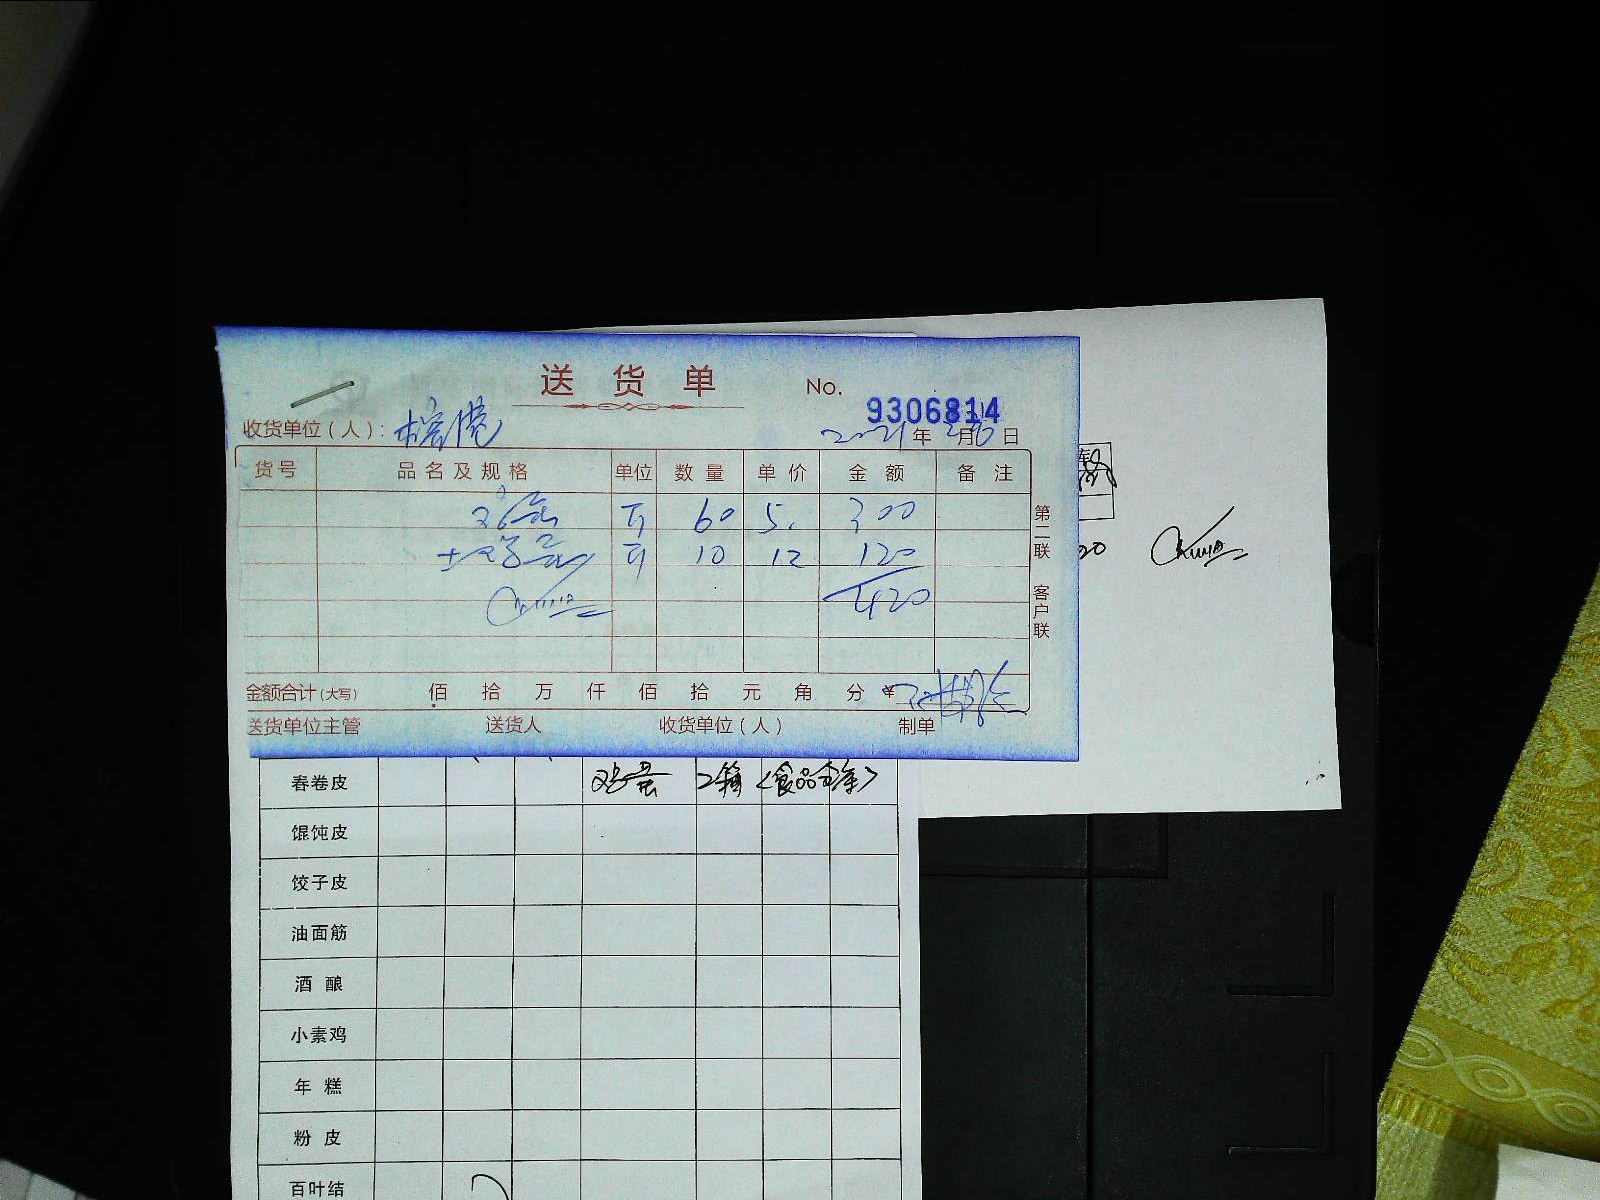 送货单 No. 9306814
收货单位（人）： 2021年 月 日
货号 品名及规格 单位 数量 单价 金额 备注
鸡蛋 斤 60 5. 300
土鸡蛋 斤 10 12 120
420
第二联 客户联
金额合计(大写) 佰 拾 万 仟 佰 拾 元 角 分 ¥
送货单位主管 送货人 收货单位（人） 制单
春卷皮 鸡蛋 2箱
馄饨皮
饺子皮
油面筋
酒酿
小素鸡
年糕
粉皮
百叶结